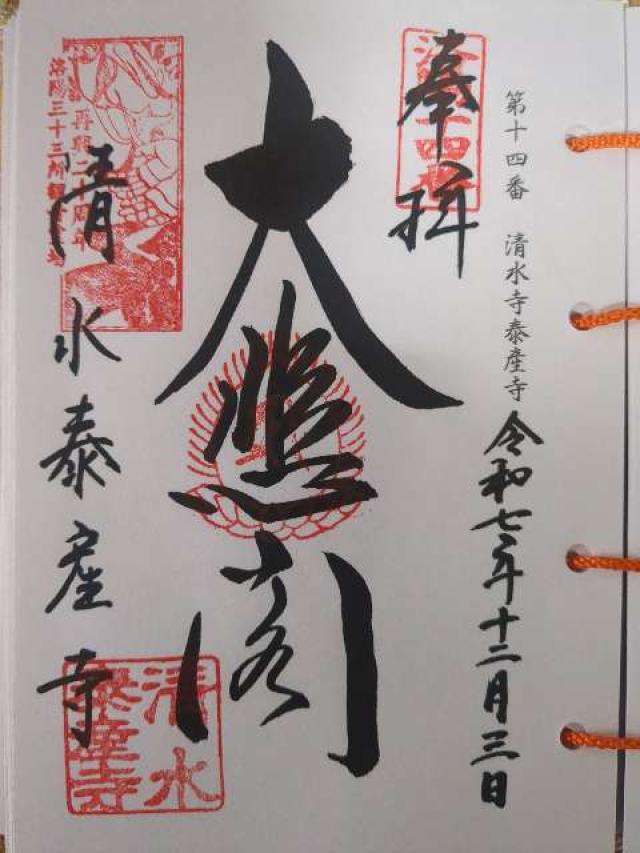 第十四番 清水寺泰産寺
令和七年十二月三日
奉拝
大悲閣
清水泰産寺
洛陽三十三所観音霊場
清水
泰産寺